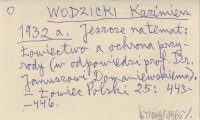 WODZICKI Kazimierz
1932 a. Jeszcze na temat:
Łowiectwo a ochrona przy-
rody (w odpowiedzi prof. Dr.
Januszowi Domaniewskiemu).
Łowiec Polski 25: 443-
-446.